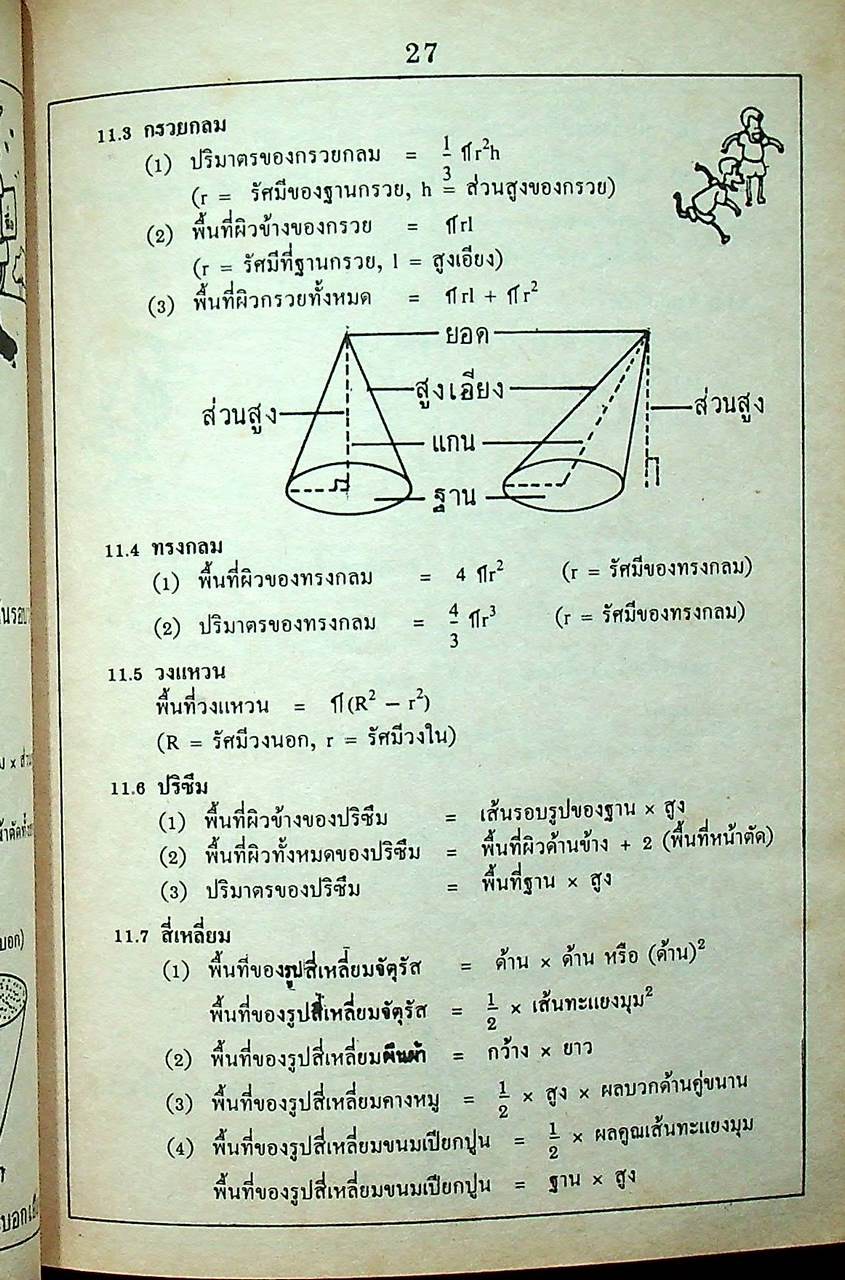 27
11.3 กรวยกลม
(1) ปริมาตรของกรวยกลม = 1/3 πr²h
(r = รัศมีของฐานกรวย, h = ส่วนสูงของกรวย)
(2) พื้นที่ผิวข้างของกรวย = πrl
(r = รัศมีที่ฐานกรวย, l = สูงเอียง)
(3) พื้นที่ผิวกรวยทั้งหมด = πrl + πr²
ยอด
สูงเอียง
ส่วนสูง ส่วนสูง
แกน
ฐาน
11.4 ทรงกลม
(1) พื้นที่ผิวของทรงกลม = 4 πr² (r = รัศมีของทรงกลม)
(2) ปริมาตรของทรงกลม = 4/3 πr³ (r = รัศมีของทรงกลม)
11.5 วงแหวน
พื้นที่วงแหวน = π(R² − r²)
(R = รัศมีวงนอก, r = รัศมีวงใน)
11.6 ปริซึม
(1) พื้นที่ผิวข้างของปริซึม = เส้นรอบรูปของฐาน × สูง
(2) พื้นที่ผิวทั้งหมดของปริซึม = พื้นที่ผิวด้านข้าง + 2 (พื้นที่หน้าตัด)
(3) ปริมาตรของปริซึม = พื้นที่ฐาน × สูง
11.7 สี่เหลี่ยม
(1) พื้นที่ของรูปสี่เหลี่ยมจัตุรัส = ด้าน × ด้าน หรือ (ด้าน)²
พื้นที่ของรูปสี่เหลี่ยมจัตุรัส = 1/2 × เส้นทะแยงมุม²
(2) พื้นที่ของรูปสี่เหลี่ยมผืนผ้า = กว้าง × ยาว
(3) พื้นที่ของรูปสี่เหลี่ยมคางหมู = 1/2 × สูง × ผลบวกด้านคู่ขนาน
(4) พื้นที่ของรูปสี่เหลี่ยมขนมเปียกปูน = 1/2 × ผลคูณเส้นทะแยงมุม
พื้นที่ของรูปสี่เหลี่ยมขนมเปียกปูน = ฐาน × สูง